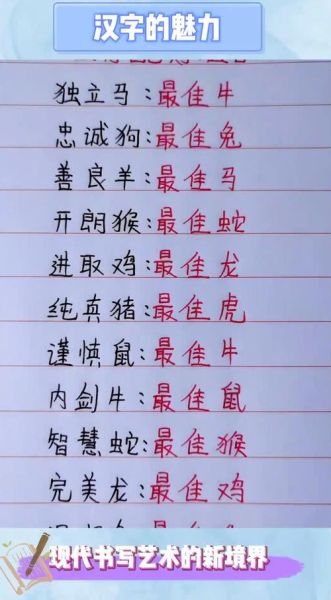 汉字的魅力
独立马:最佳牛
忠诚狗:最佳兔
善良羊:最佳马
开朗猴:最佳蛇
进取鸡:最佳龙
纯真猪:最佳虎
谨慎鼠:最佳牛
内剑牛:最佳鼠
智慧蛇:最佳猴
完美龙:最佳鸡
现代书写艺术的新境界